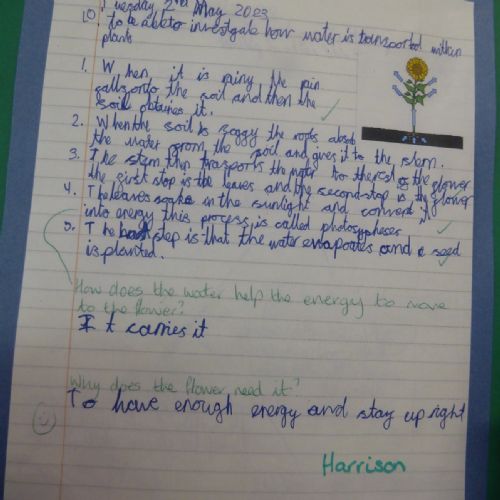 Tuesday 2nd May 2023
LO: to be able to investgate how water is transported within
plants
1. When, it is rainy the rain
falls onto the soil and then the
soil obtaines it.
2. When the soil is soggy the roots absob
the water from the soil and gives it to the stem.
3. The stem then trasports the water to the rest of the flower
the first stop is the leaves and the second stop is the flower
4. The leaves soake in the sunlight and convert it
into energy this process is called photosypheses
5. The step is that the water evaporates and a seed
is planted.
How does the water help the energy to move
to the flower?
It carries it
Why does the flower need it?
To have enough energy and stay up right
Harrison